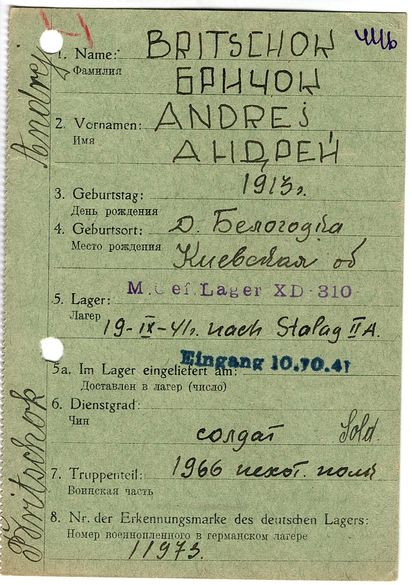 1. Name: BRITSCHOK
Фамилия БРИЧОК
2. Vornamen: ANDREJ
Имя АНДРЕЙ
3. Geburtstag: 1913 г.
День рождения
4. Geburtsort: д. Белогодка
Место рождения Киевская об
5. Lager: M. Gef. Lager XD-310
Лагерь 19-IX-41г. nach Stalag II A.
5a. Im Lager eingeliefert am: Eingang 10.10.41
Доставлен в лагерь (число)
6. Dienstgrad:
Чин солдат Sold.
7. Truppenteil: 1966 пехот. полк
Воинская часть
8. Nr. der Erkennungsmarke des deutschen Lagers:
Номер военнопленного в германском лагере
11973.
Andrej
Britschok